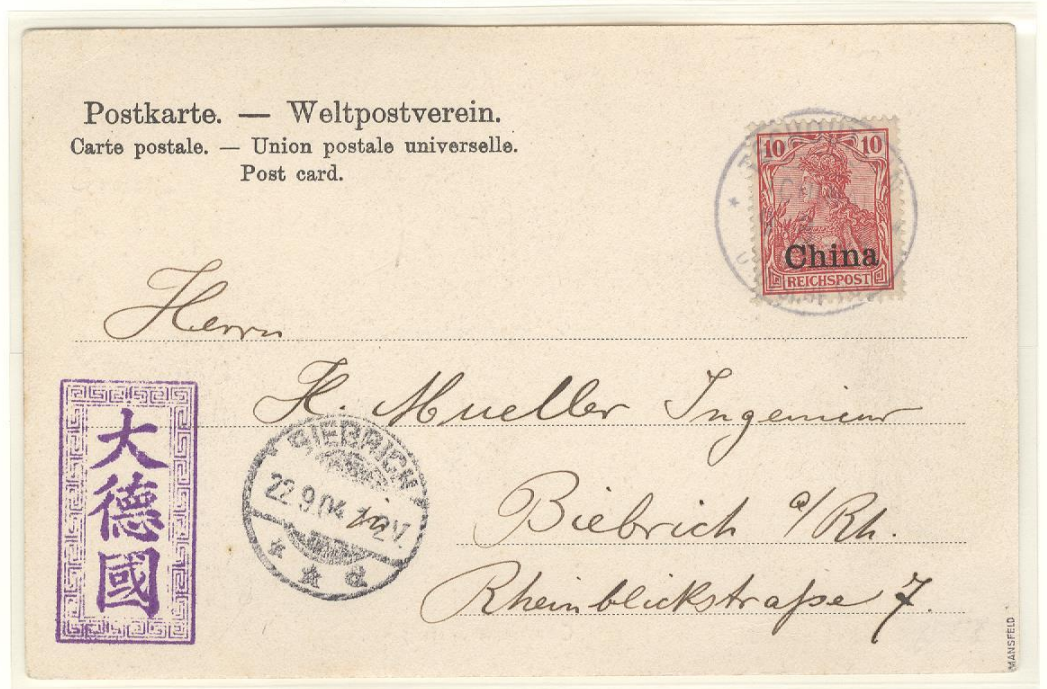 Postkarte. — Weltpostverein.
Carte postale. — Union postale universelle.
Post card.
10 10
China
REICHSPOST
Herrn
H. Mueller Ingenieur
Biebrich a/Rh.
Rheinblickstraße 7.
大德國
BIEBRICH
22.9.04
MANSFELD